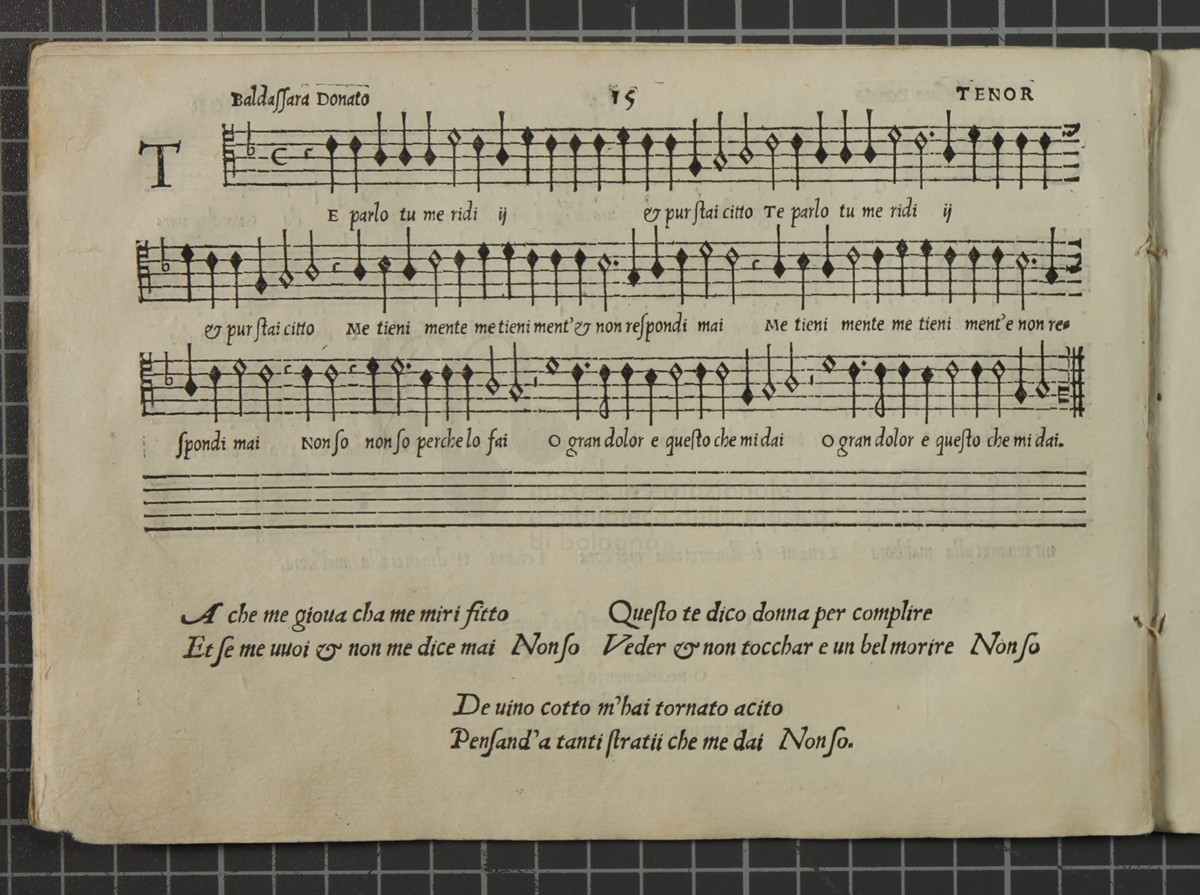 Baldaſſara Donato 15 TENOR
TE parlo tu me ridi ij & pur ſtai citto Te parlo tu me ridi ij
& pur ſtai citto Me tieni mente me tieni ment'& non reſpondi mai Me tieni mente me tieni ment'e non re-
ſpondi mai Non ſo non ſo perche lo fai O gran dolor e queſto che mi dai O gran dolor e queſto che mi dai.
A che me gioua cha me miri fitto
Et ſe me uuoi & non me dice mai Non ſo
Queſto te dico donna per complire
Veder & non tocchar e un bel morire Non ſo
De uino cotto m'hai tornato acito
Penſand'a tanti ſtratii che me dai Non ſo.